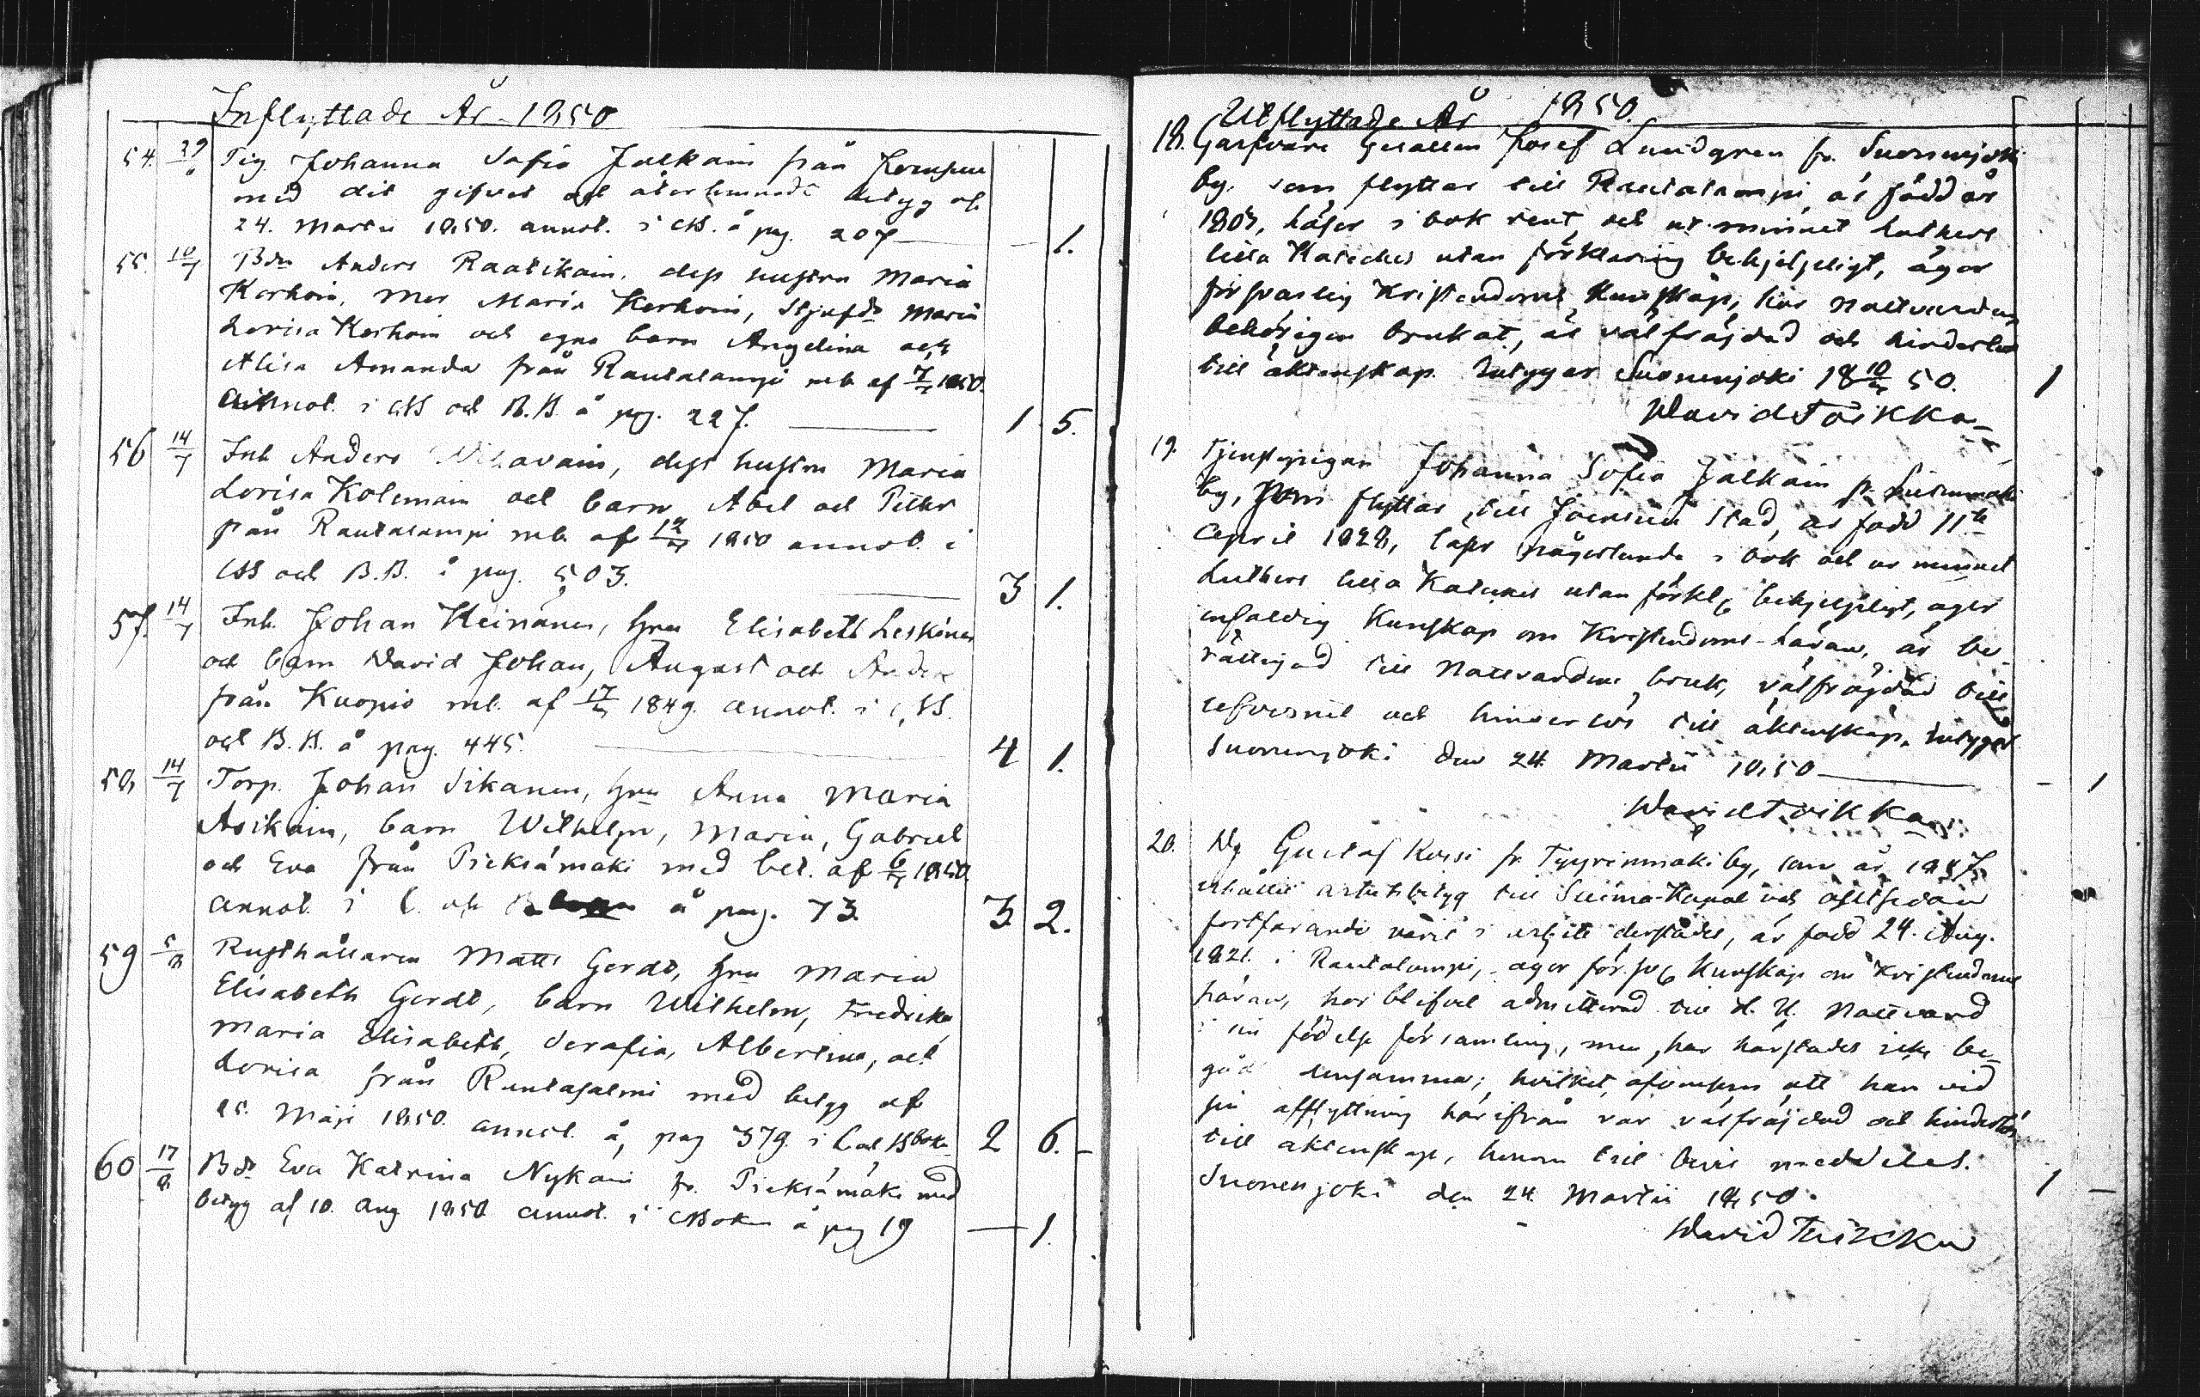 Inflyttade År 1850
54. Pig. Johanna Sofia Jalkain från
med dit gifvet och återlemnadt betyg af
24. Martii 1850. annot. i CB. å pag. 207 — 1.
55. 10/7 Bdn Anders Raatikain, dess hustru Maria
Korhoin, mor Maria Korhoin, Stjufdr Maria
Lovisa Korhoin och egna barn Angelina och
Alisa Amanda från Rautalampi mb. af 7/7 1850.
annot. i CB och B.B. å pag. 227. — 1. 5.
56 14/7 Inh. Anders Wihavain, dess hustru Maria
Lovisa Kolimain och barn Abel och Petter
från Rautalampi mb. af 12/7 1850 annot. i
CB och B.B. å pag. 503. — 3 1.
57. 14/7 Inh. Johan Keinänen, hru Elisabeth Leskinen
och barn David Johan, August och Anders
från Kuopio mb. af 1849. annot. i CB.
och B.B. å pag. 445. — 4 1.
58 14/7 Torp. Johan Sikanen, hru Anna Maria
Asikain, barn Wilhelm, Maria, Gabriel
och Eva från Pieksämäki med bet. af 6/7 1850.
annot. i C. och å pag. 73. 3 2.
59 5/8 Rusthållaren Matts Gerdt, hru Maria
Elisabeth Gerdt, barn Wilhelm, Fredrika,
Maria Elisabeth, Serafia, Albertina, och
Lovisa från Rantasalmi med betyg af
25. Maji 1850. annot. å pag 379. i Com Boken 2 6.
60 17/8 Bdr Eva Katrina Nykain fr. Pieksämäki med
betyg af 10. Aug 1850 annot. i CBoken å pag 19 — 1.
Utflyttade År 1850.
18. Garfvare Gesällen Josef Lundgren fr. Suonenjoki
by. som flyttar till Rautalampi, är född år
1807, läser i bok rent, och ur minnet Luthers
lilla Kateches utan förklaring behjelpligt, äger
försvarlig Kristendoms Kunskap, har nattvarden
behörigen brukat, är välfräjdad och hinderlös
till äktenskap. Intygar Suonenjoki 18 10/ 50. 1
David Toikka
19. Tjenstpigan Johanna Sofia Jalkain fr.
by, som flyttar till Joensuu Stad, är född 11te
April 1828, läser någorlunda i bok och ur minnet
Luthers lilla Kateches utan förkl. behjelpligt, äger
enfaldig Kunskap om Kristendoms-läran, är be-
rättigad till Nattvardens bruk, välfräjdad till
lefvernet och hinderlös till äktenskap. Intygar
Suonenjoki den 24. Martii 1850 — - 1
David Toikka
20. Dg Gustaf Kossi fr. Tyyrinmäki by, som år 1847.
erhållit arbetsbetyg till Saima-Kanal och alltsedan
fortfarande varit i arbete derstädes, är född 24. Aug.
1821. i Rautalampi, äger förs. Kunskap om Kristendoms
läran, har blifvit admitterad till H. H. Nattvard
i sin födelse församling, men har härstädes icke be-
gått densamma; hvilket, äfvensom att han vid
sin afflyttning härifrån var välfräjdad och hinderlös
till äktenskap, honom till bevis meddelas.
Suonenjoki den 24. Martii 1850. 1 —
David Toikka